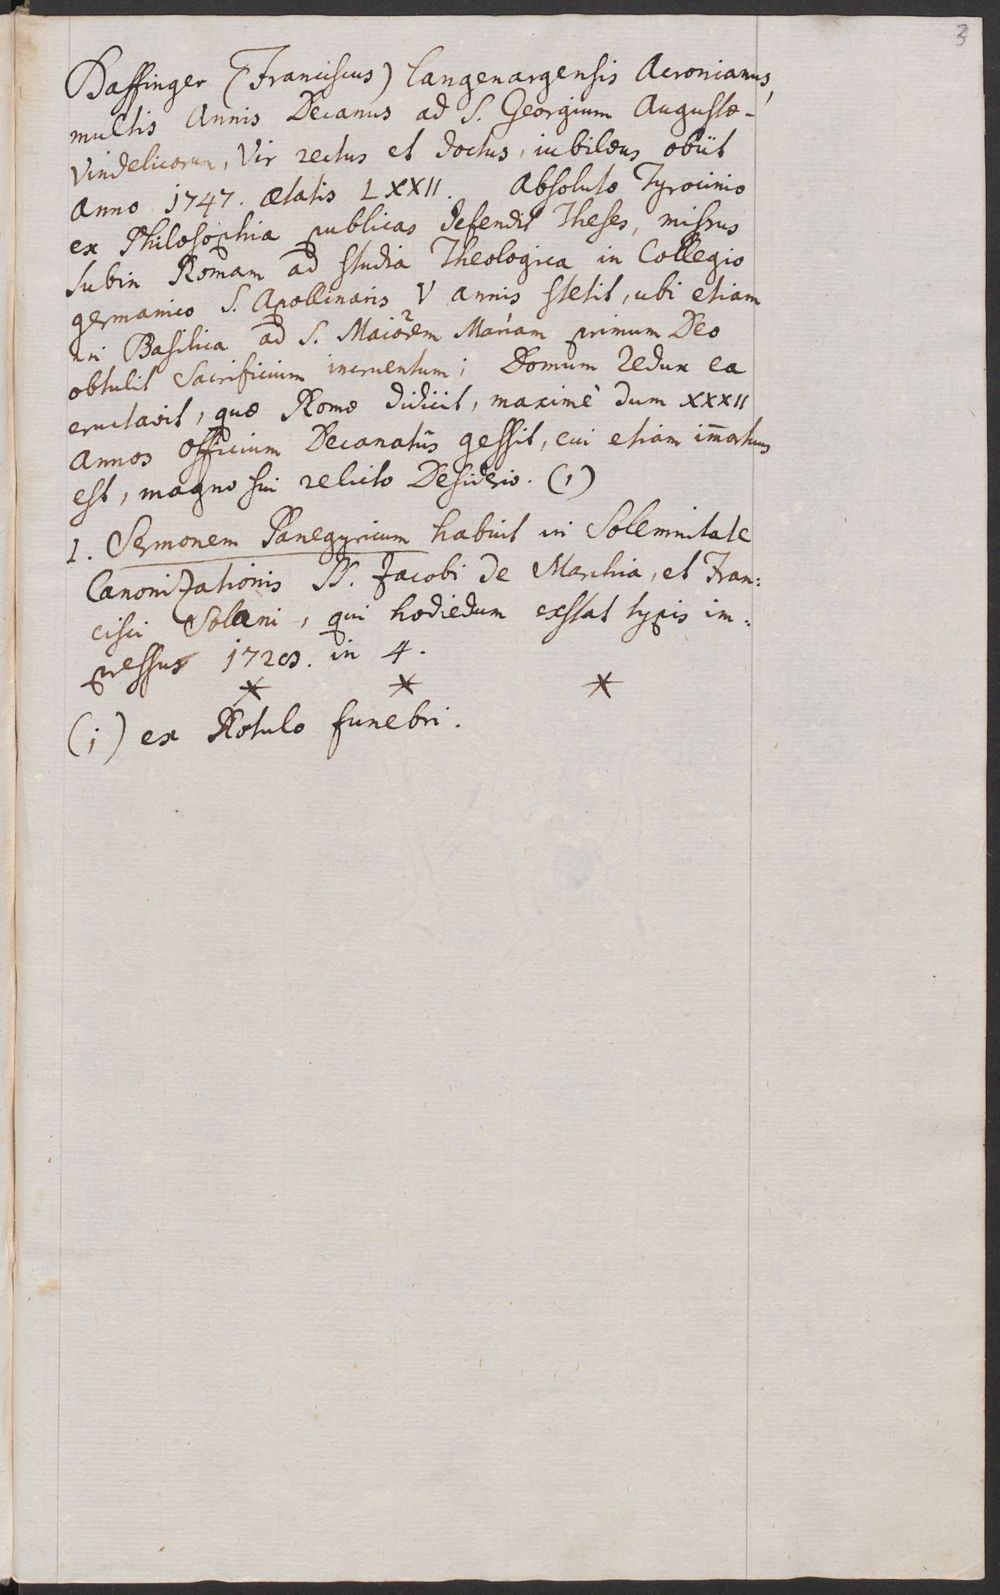 3
Baffinger (Franciscus) Langenargensis Acronianus,
multis Annis Decanus ad S. Georgium Augustæ-
Vindelicorum, Vir rectus et doctus, iubilæus obiit
Anno 1747. ætatis LXXII. Absoluto Tyrocinio
ex Philosophia publicas defendit Theses, missus
subin Romam ad studia Theologica in Collegio
germanico S. Apollinaris V annis stetit, ubi etiam
in Basilica ad S. Maiorem Mariam primum Deo
obtulit Sacrificium incruentum; Domum redux ea
eructavit, quæ Romæ didicit, maximè dum XXXII
Annos officium Decanatûs gessit, cui etiam im̄ortuus
est, magno sui relicto Desiderio. (1)
1. Sermonem Panegyricum habuit in Solemnitate
Canonizationis SS. Jacobi de Marchia, et Fran:
cisci Solani, qui hodiedum exstat typis im:
pressus in 4.
* * *
(1) ex Rotulo funebri.